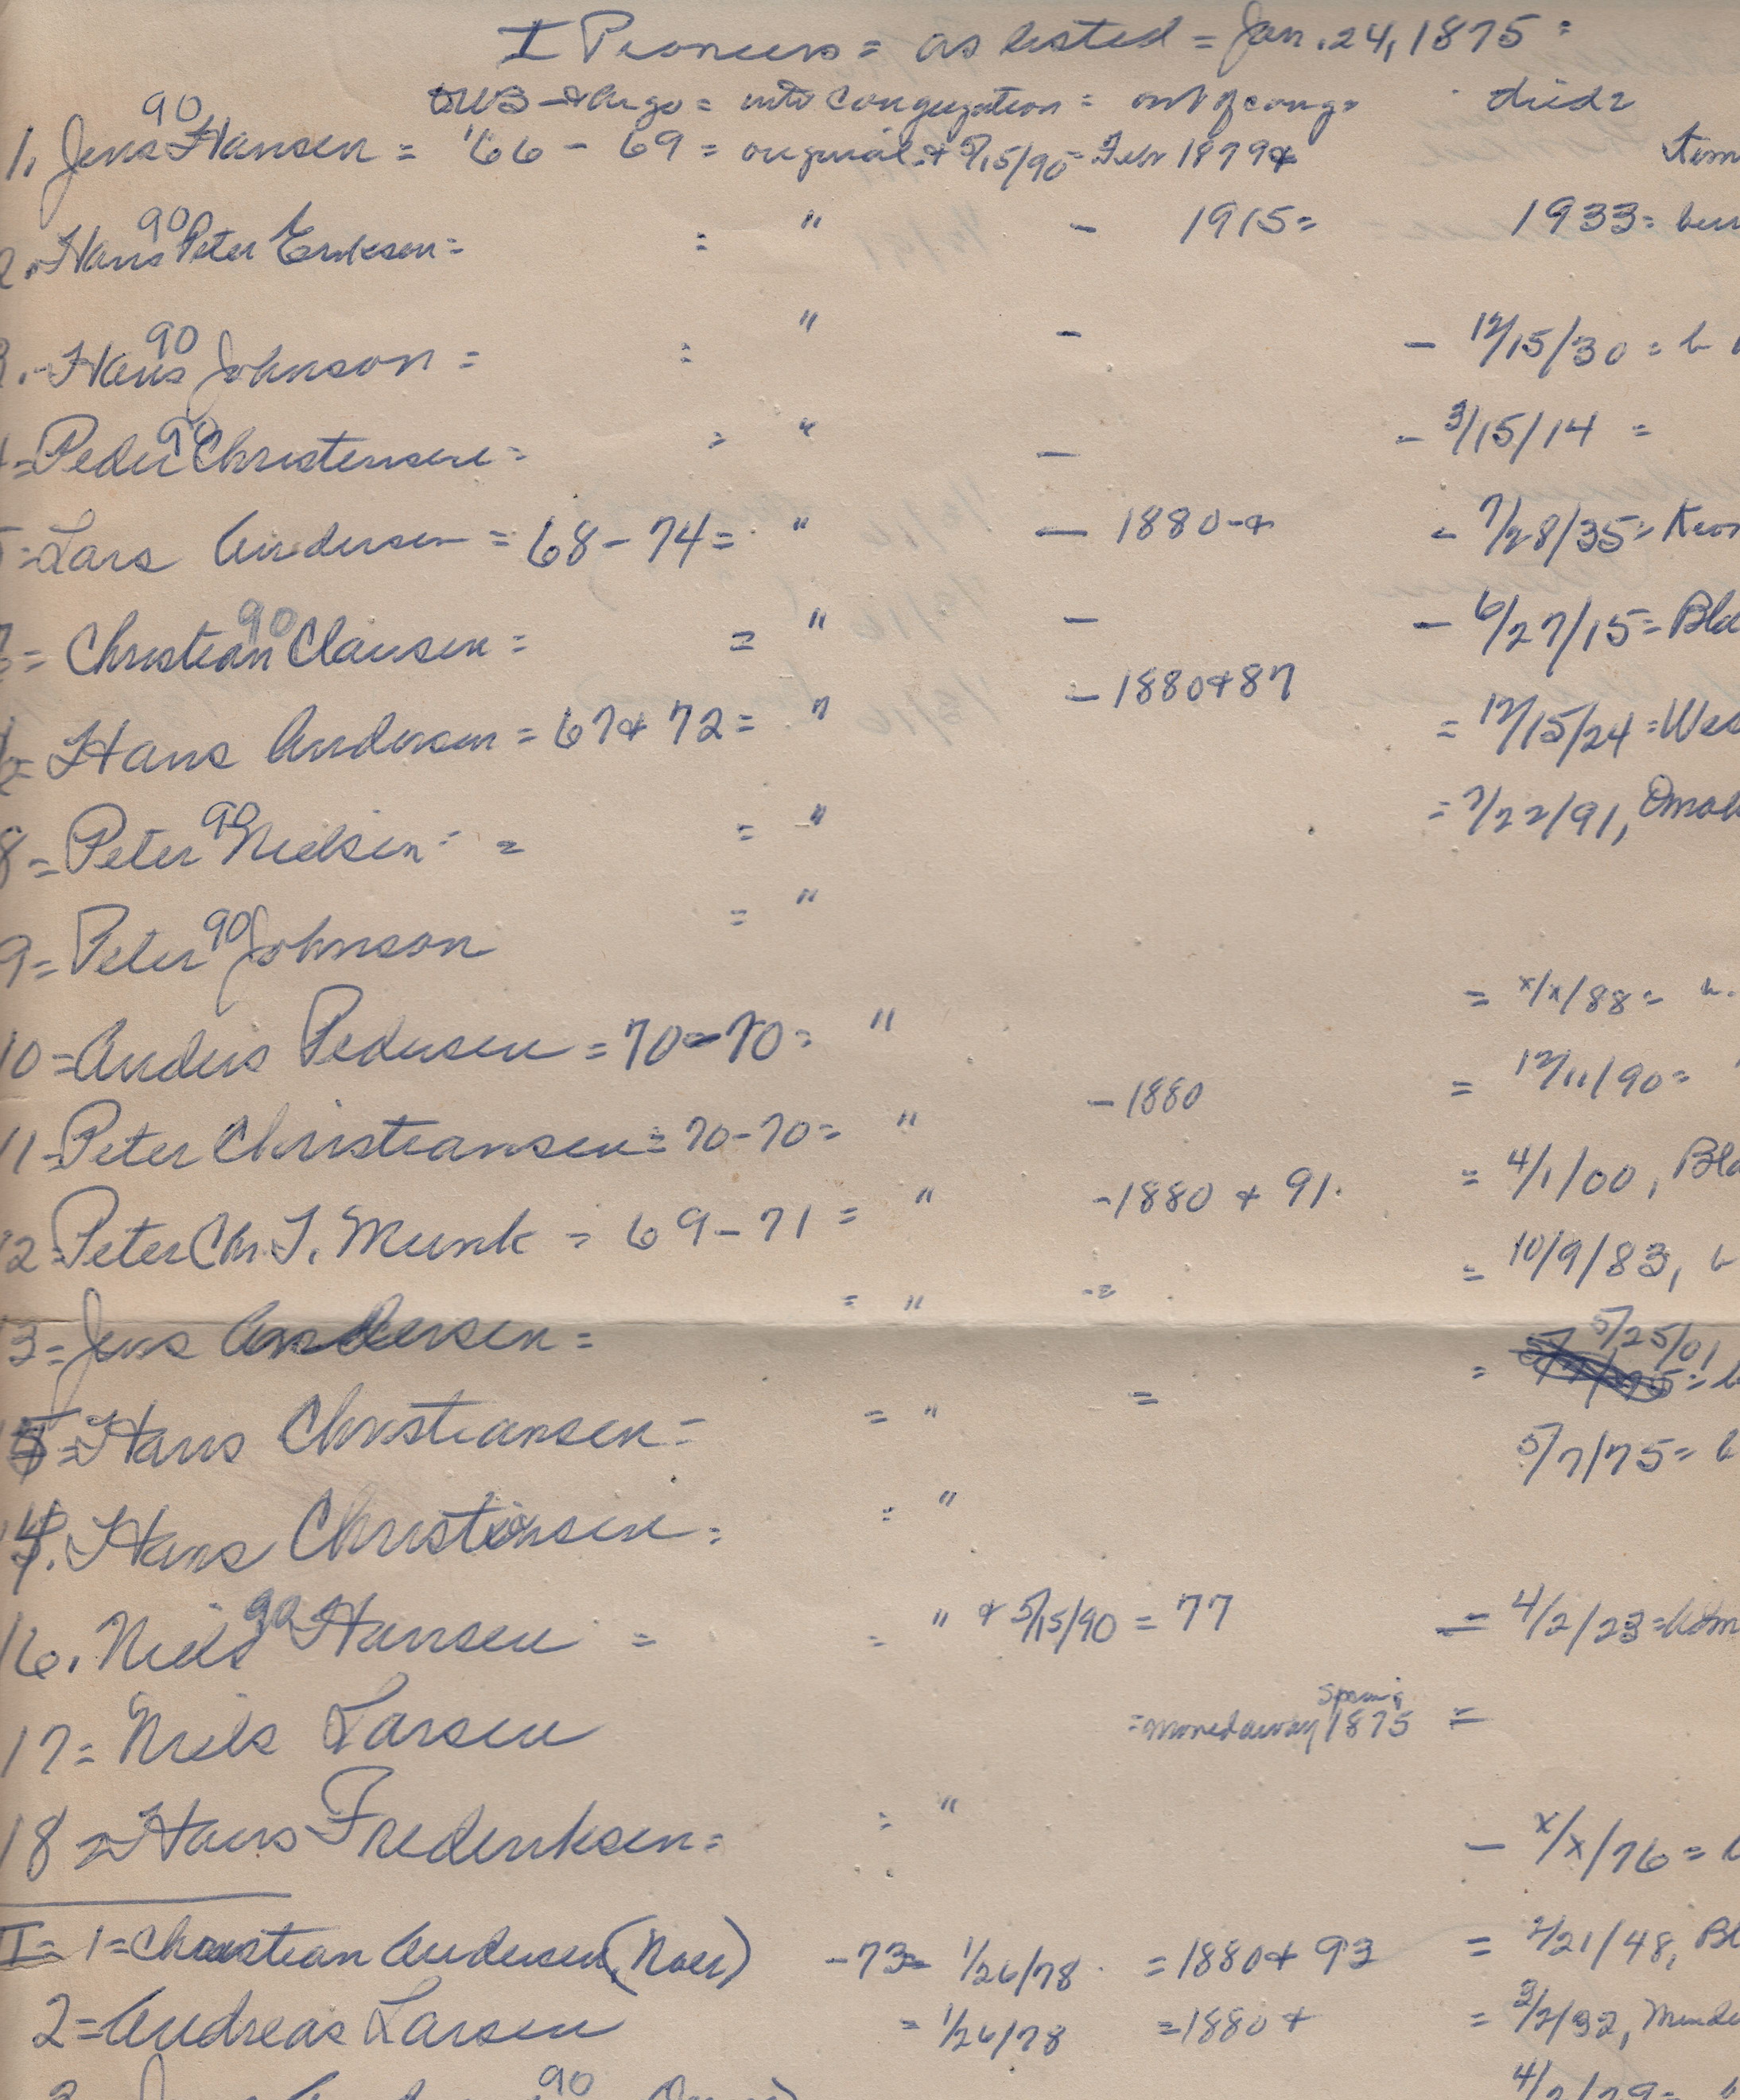 I Pioneers = as listed = Jan. 24, 1875 =
= into congregation = out of cong = died =
90
1. Jens Hansen = '66 - 69 = original + 5/15/90 - Febr 1879 +
90
2. Hans Peter Eriksen = = " - 1915 = 1933 =
90
3. Hans Johnson = = " - - 12/15/30 = b
90
4 = Peder Christensen = = " - - 3/15/14 =
5 = Lars Andersen = 68 - 74 = " - 1880 - + - 7/28/35 =
90
= Christian Clausen = = " - - 6/27/15 = Bla
= Hans Andersen = 67 + 72 = " - 1880 + 87 = 12/15/24 =
90
8 = Peter Nielsen = = " = 7/22/91, Omah
90
9 = Peter Johnson = " = x/x/88 =
10 = Anders Pedersen = 70 - 70 = " = 12/11/90 =
11 - Peter Christiansen = 70 - 70 = " - 1880 = 4/1/00, Bla
12 = Peter Chr. T. Munk = 69 - 71 = " - 1880 + 91. = 10/9/83, b
13 = Jens Andersen = = " - = = 5/25/01 = b
15 = Hans Christiansen = = " = 5/7/75 = b
14. Hans Christensen = = "
90
16. Niels Hansen = = " + 5/15/90 = 77 = 4/2/23 =
17 = Niels Larsen = moved away Spring 1875 =
18 = Hans Frederiksen = = " - x/x/76 = b
I = 1 = Christian Andersen (Noer) - 73 = 1/26/78 = 1880 + 93 = 2/21/48, Bl
2 = Andreas Larsen = 1/26/78 = 1880 + = 3/2/32, Minde
90